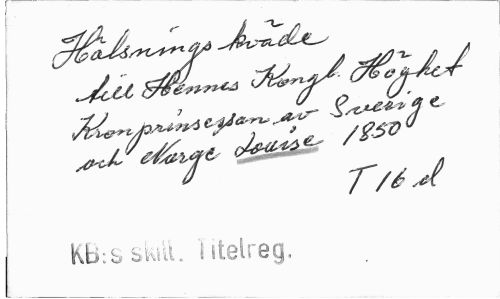 Hälsnings kväde
till Hennes Kongl. Höghet
Kronprinsessan av Sverige
och Norge Louise 1850
T 16 d
KB:s skill. Titelreg.